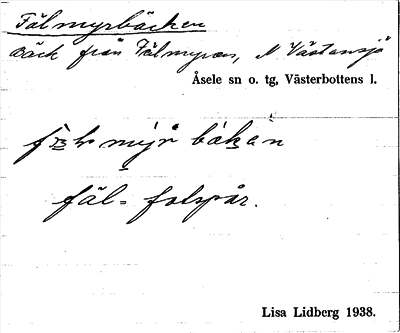 Fälmyrbäcken
Bäck från Fälmyran, N Västansjö
Åsele sn o. tg, Västerbottens l.
myr bäkan
fäl = fotspår.
Lisa Lidberg 1938.